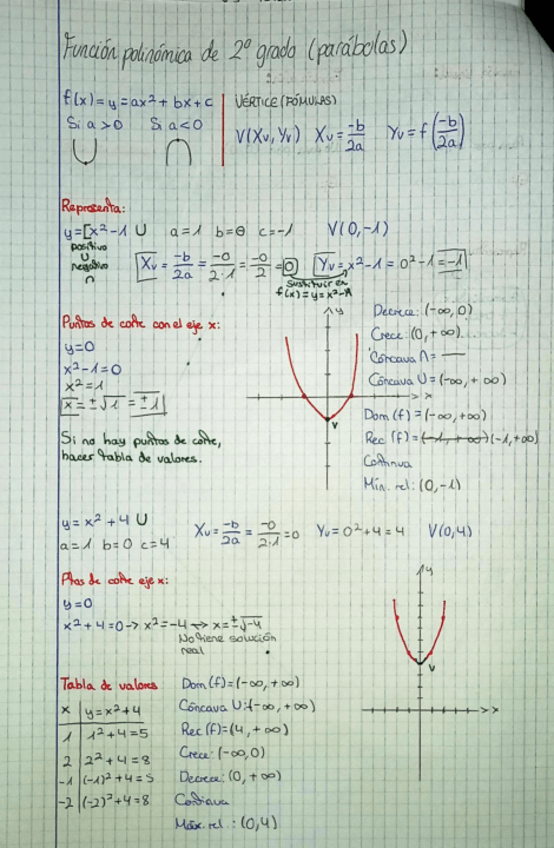 Función polinómica de 2º grado (parábolas)
f(x)=y=ax²+bx+c
Si a>0 Si a<0
VÉRTICE (FÓMULAS)
V(Xv, Yv) Xv = -b/2a Yv = f(-b/2a)
Representa:
y=[x²-1 U a=1 b=0 c=-1 V(0,-1)
positivo
U
negativo
∩
Xv = -b/2a = -0/2·1 = -0/2 = 0 Yv = x²-1 = 0²-1 = -1
Sustituir en
f(x)=y=x²-1
Puntos de corte con el eje x:
y=0
x²-1=0
x²=1
x=±√1=±1
Si no hay puntos de corte,
hacer tabla de valores.
y
x
v
Decrece: (-∞,0)
Crece: (0,+∞)
Cóncava ∩= —
Cóncava U=(-∞,+∞)
Dom(f)=(-∞,+∞)
Rec(f)=(-1,+∞)(-1,+∞)
Continua
Mín. rel: (0,-1)
y=x²+4 U
a=1 b=0 c=4
Xv = -b/2a = -0/2·1 = 0 Yv=0²+4=4 V(0,4)
Ptos de corte eje x:
y=0
x²+4=0→x²=-4→x=±√-4
No tiene solución
real
y
x
v
Tabla de valores
x y=x²+4
1 1²+4=5
2 2²+4=8
-1 (-1)²+4=5
-2 (-2)²+4=8
Dom(f)=(-∞,+∞)
Cóncava U:(-∞,+∞)
Rec(f)=(4,+∞)
Crece: (-∞,0)
Decrece: (0,+∞)
Continua
Máx. rel.: (0,4)